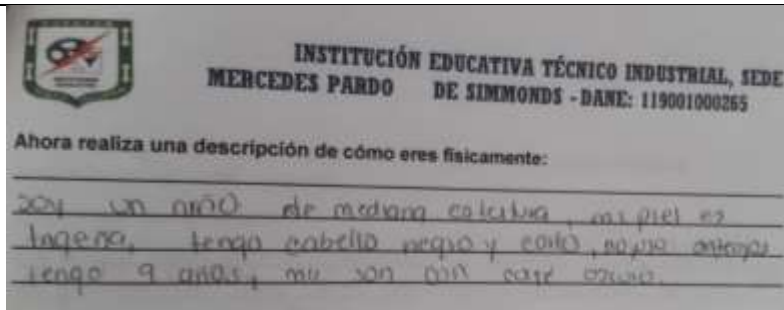 INSTITUCIÓN EDUCATIVA TÉCNICO INDUSTRIAL, SEDE
MERCEDES PARDO DE SIMMONDS - DANE: 119001000265
Ahora realiza una descripción de cómo eres físicamente:
soy un niño de mediana, mi piel es
tengo cabello negro y corto,
tengo 9 años, son cafe